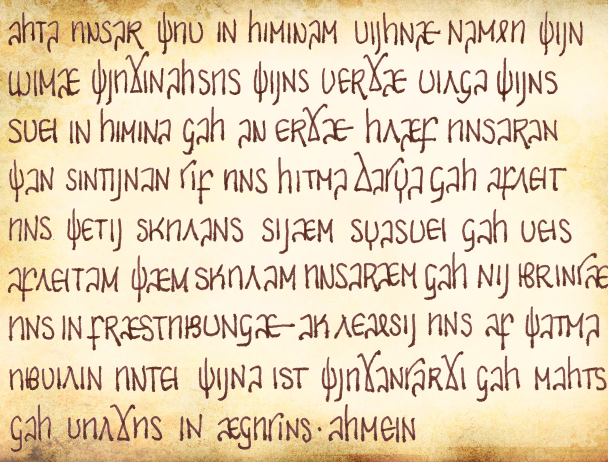 ahta unsar þu in himinam vijhnæ namon þijn
vimæ þjuðinahsus þijns verðæ vilga þijns
svei in himina gah an erðæ hlæf unsaran
þan sintijnan gif uns hitma daga gah afleit
uns þetij skulans sijæm svasvei gah veis
afleitam þæm skulam unsaræm gah nij bringæs
uns in fræstubungæ ak leausij uns af þatma
ubuilin untei þijna ist þjuðangarði gah mahts
gah vulðus in æguins · ahmein